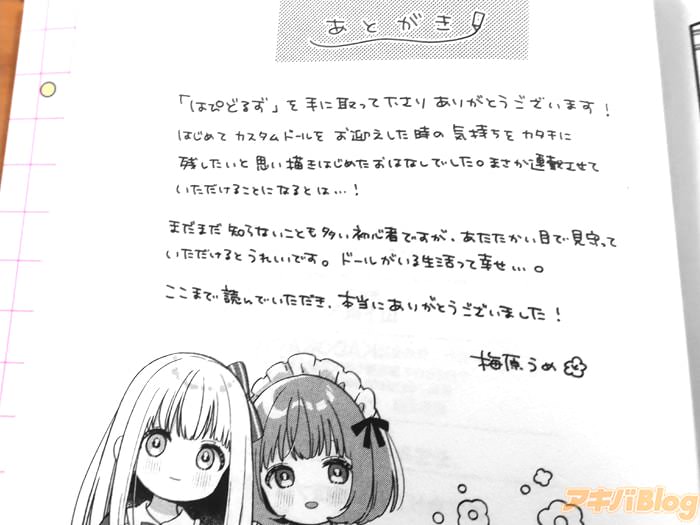 あとがき
「はぴどるず」を手に取って下さりありがとうございます！
はじめてカスタムドールをお迎えした時の気持ちをカタチに
残したいと思い描きはじめたおはなしでした。まさか連載させて
いただけることになるとは…！
まだまだ知らないことも多い初心者ですが、あたたかい目で見守って
いただけるとうれしいです。ドールがいる生活って幸せ…。
ここまで読んでいただき、本当にありがとうございました！
梅原うめ
アキバBlog